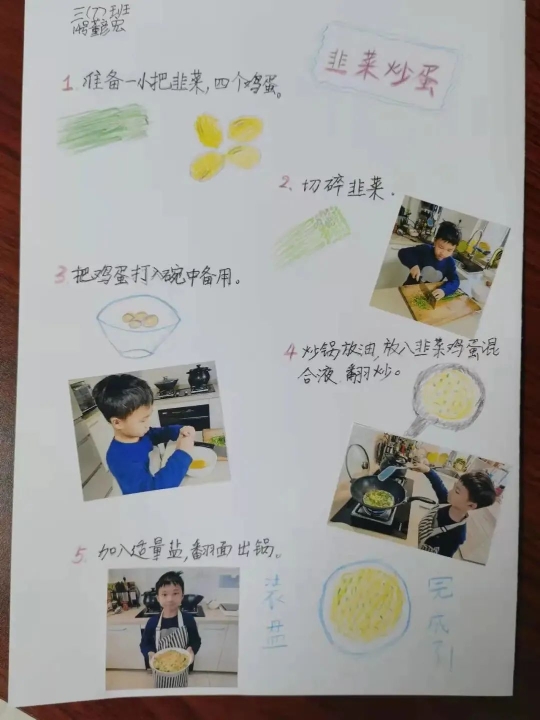 三(7)班
韭菜炒蛋
1. 准备一小把韭菜,四个鸡蛋。
2. 切碎韭菜.
3. 把鸡蛋打入碗中备用。
4 炒锅放油,放入韭菜鸡蛋混
合液,翻炒。
5. 加入适量盐,翻面出锅。
装盘
完成了